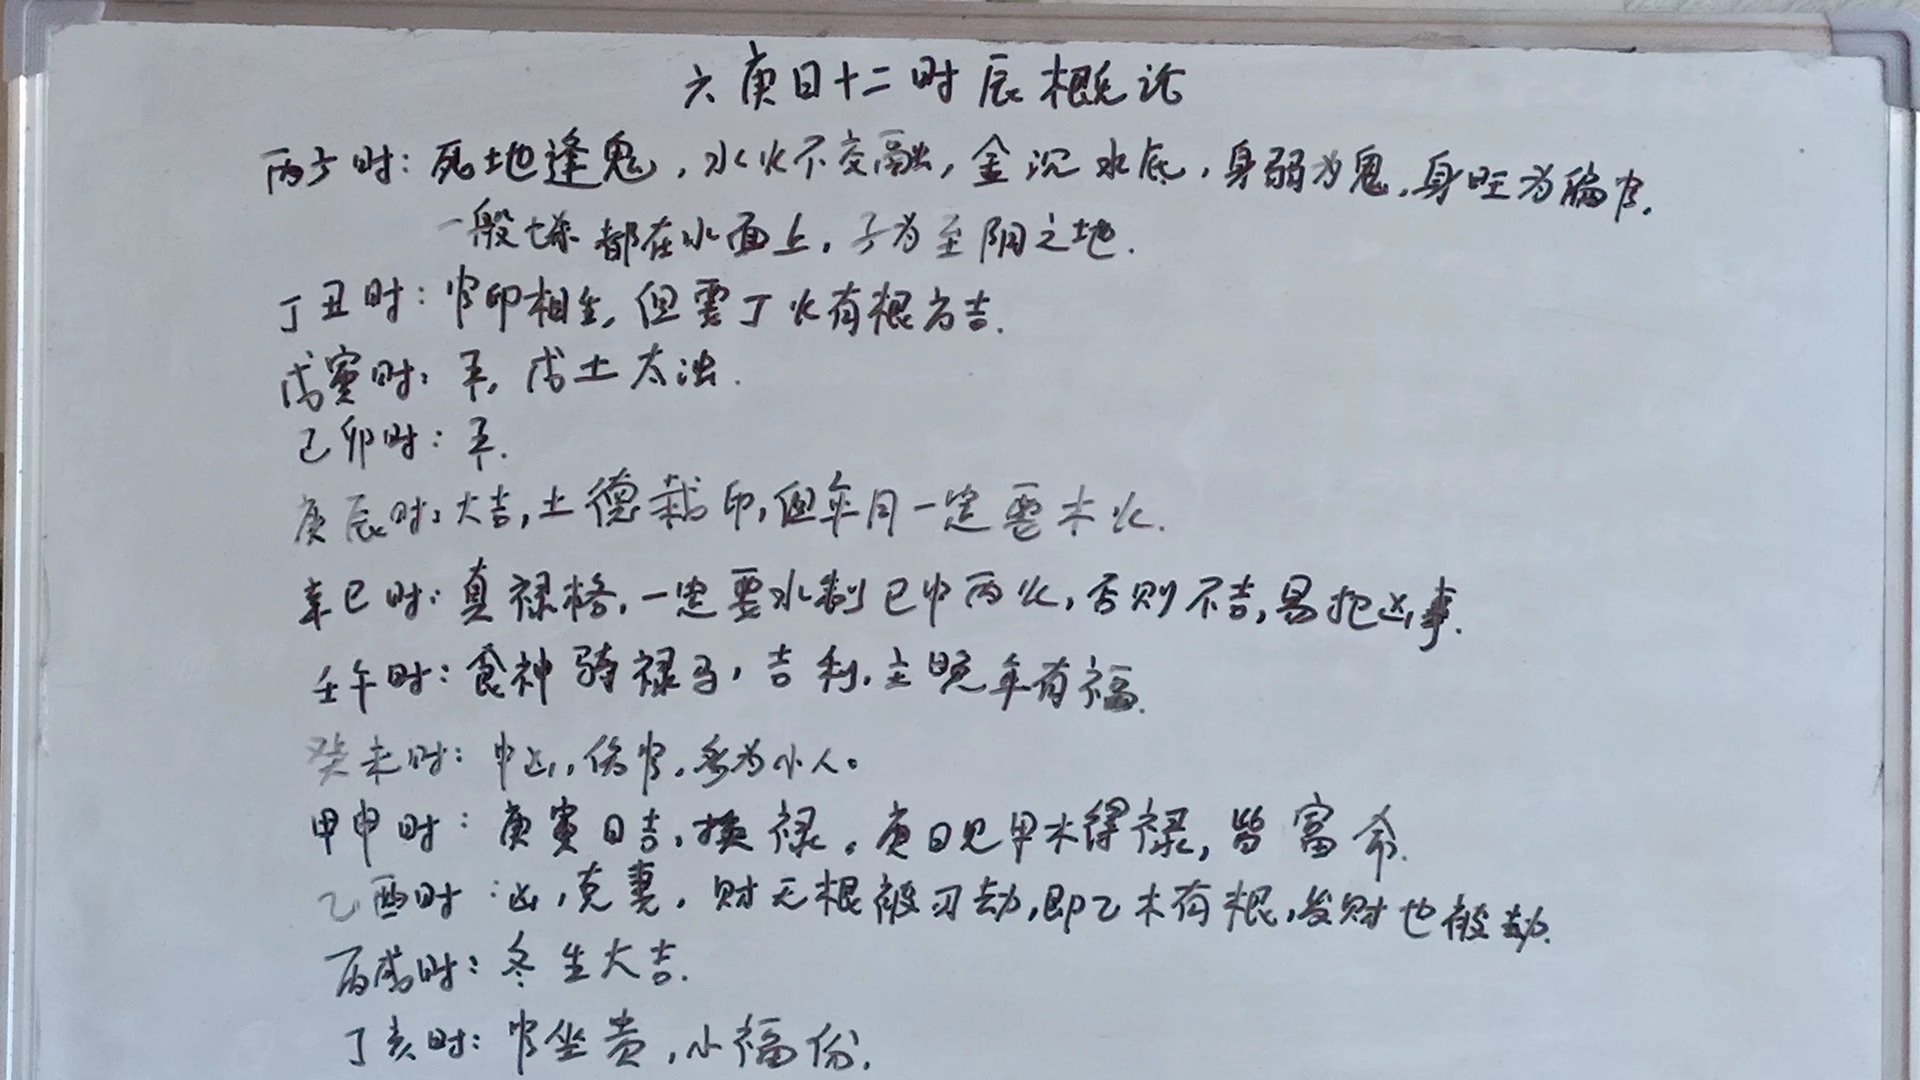 六庚日十二时辰概论
丙子时：死地逢鬼，水火不交融，金沉水底，身弱为鬼，身旺为偏官。
一般 都在水面上，子为至阴之地．
丁丑时：官印相生，但要丁火有根方吉．
戊寅时：平，戊土太浊．
己卯时：平．
庚辰时：大吉，土德 印，但年月一定要木火．
辛巳时：真禄格，一定要水制巳中丙火，否则不吉，易犯凶事．
壬午时：食神骑禄马，吉利，主晚年有福．
癸未时：中凶，伤官，多为小人。
甲申时：庚寅日吉，换禄。庚日见甲木得禄，皆富命．
乙酉时：凶，克妻，财无根被刃劫，即乙木有根，发财也被劫．
丙戌时：冬生大吉．
丁亥时：官坐贵，小福份．